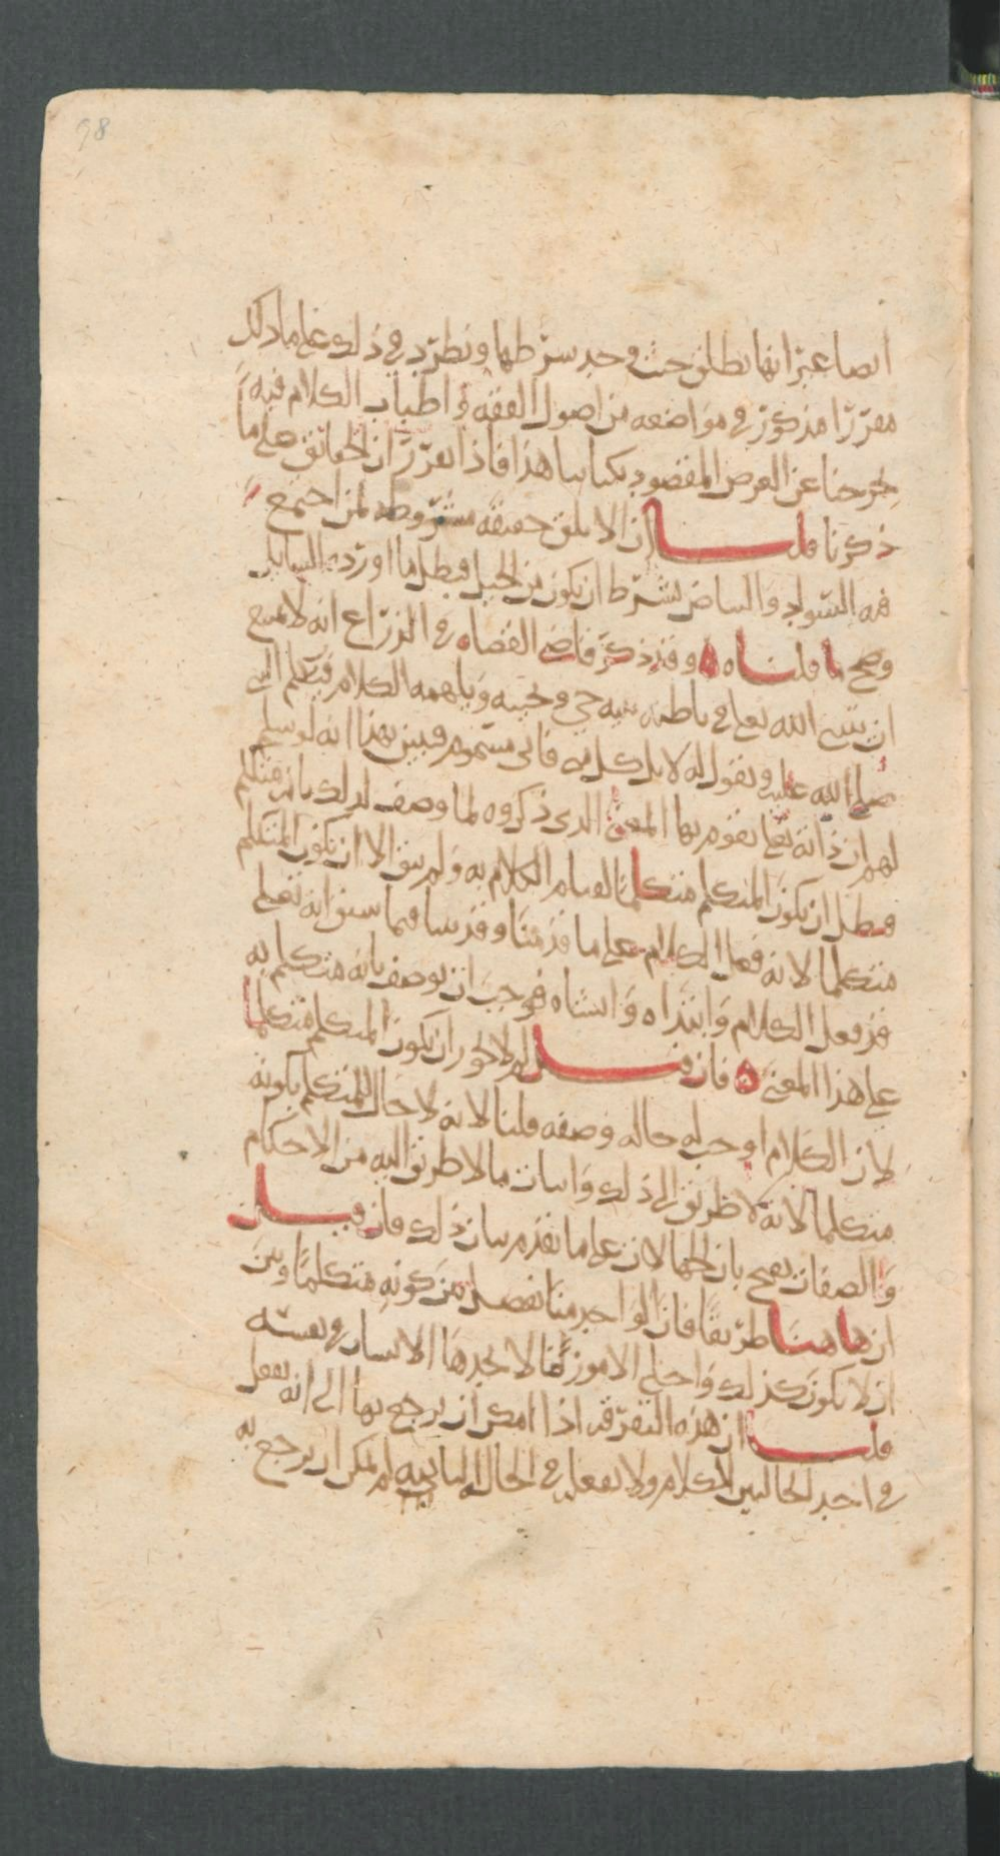 98
ايضا غير انها تطلق حيث وجد شرطها ونطرد في ذلك على ما ذكر
مقررا مذكور في مواضعه من اصول الفقه واطياب الكلام فيه
يخرجنا عن الغرض المقصود بكتابنا هذا فاذا تقرر ان الحقائق على ما
ذكرنا قلنا ان الابلق حقيقه مشروطه لمن اجتمع
فيه السواد والبياض بشرط ان يكون من الخيل فبطل ما اورده السايل
وصح ما قلناه وقد ذكر قاضي القضاه في الذراع انه لا يمتنع
ان يبني الله تعلى في باطنه بنيه حي وحيه ويلهمه الكلام فيتكلم النبي
صلى الله عليه ويقول له لا تاكل منه فاني مسموم فبين بهذا انه لو سلم
لهم ان ذاته تعلى يقوم بها المعنى الذي ذكروه لما وصف لذلك بانه متكلم
فبطل ان يكون المتكلم متكلما لقيام الكلام به ولم يبق الا ان يكون المتكلم
متكلما لانه فعل الكلام على ما قدمنا وقد بينا فيما سبق انه تعلى
قد فعل الكلام وابتداه وانشاه فوجب ان يوصف بانه متكلم به
على هذا المعنى فان قيل لم لا يجوز ان يكون المتكلم متكلما
لان الكلام اوجب له حاله وصفه قلنا لانه لا حال للمتكلم بكونه
متكلما لانه لا طريق الى ذلك واثبات ما لا طريق اليه من الاحكام
والصفات يفتح باب الجهالات على ما تقدم بيان ذلك فان قيل
ان هاهنا طريقا فان الواحد منا يفصل بين كونه متكلما وبين
ان لا يكون كذلك واجلى الامور ما لا يجدها الانسان في نفسه
قلنا ان هذه التفرقه اذا امكن ان يرجع بها الى انه يفعل
في احد الحالين الكلام ولا يفعل في الحال الثانيه لم يمكن ان يرجع به